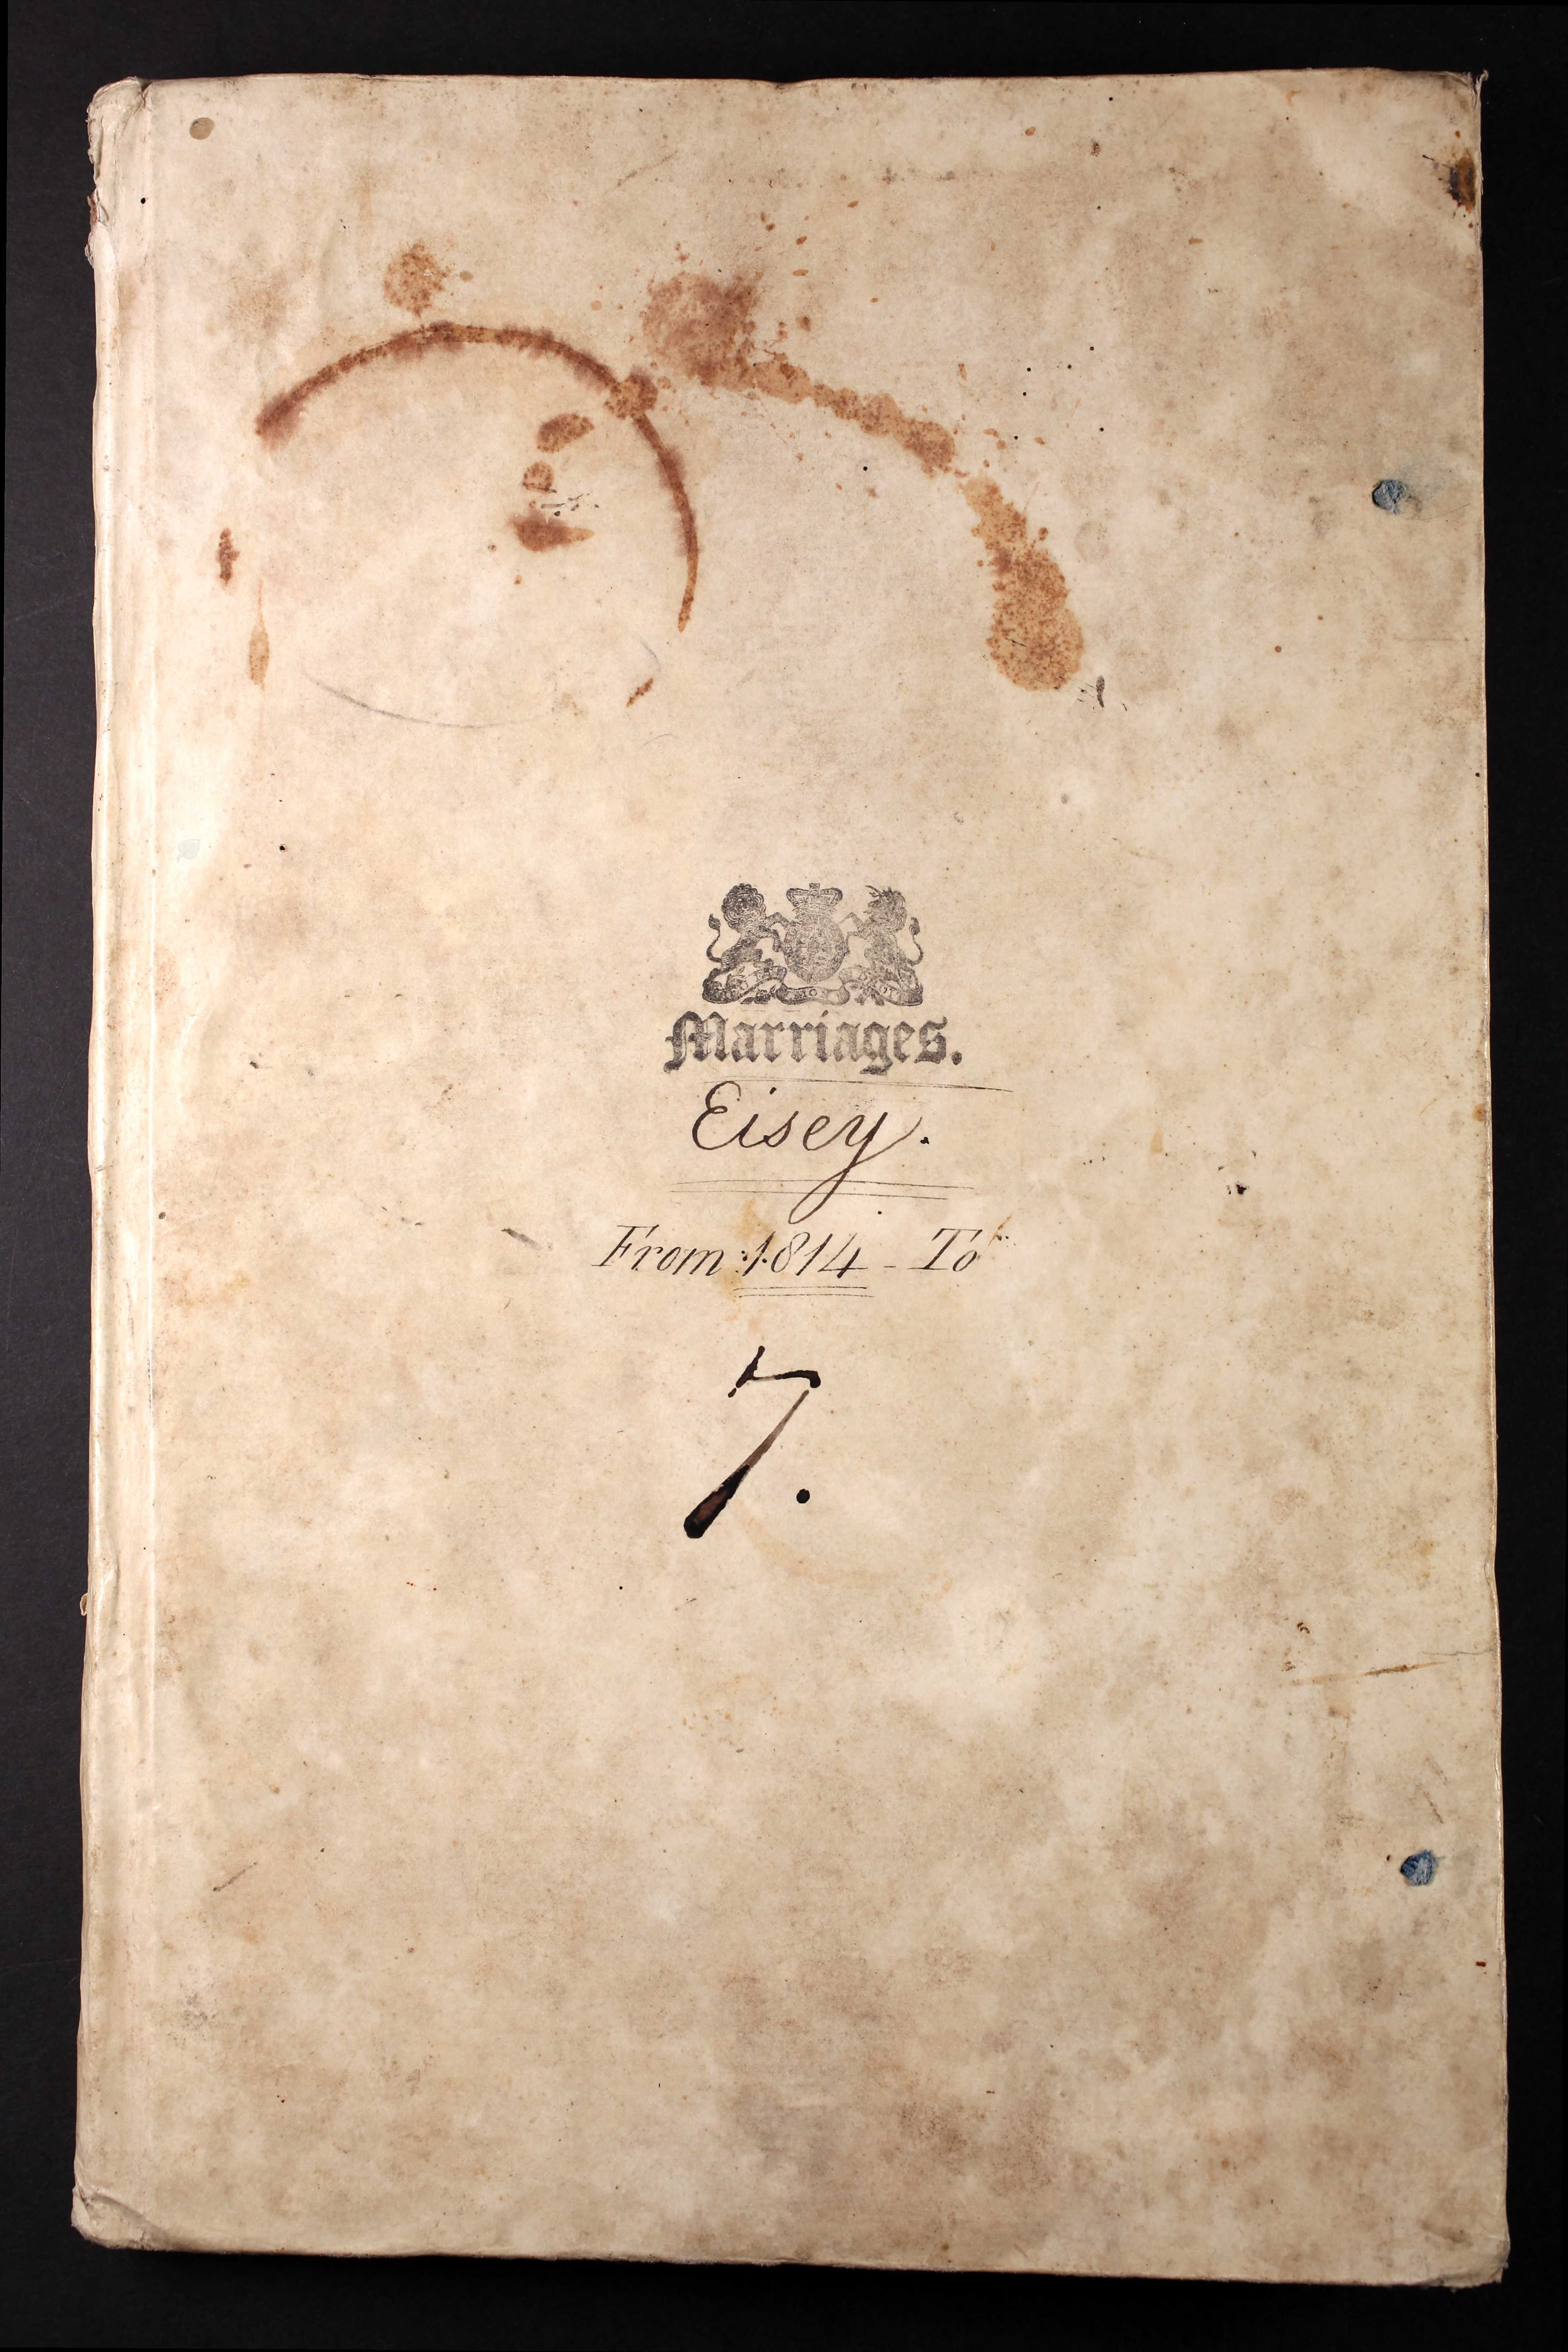 Marriages.
Eisey.
From 1814 - To
7.